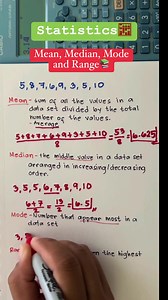 Statistics
Mean, Median, Mode
and Range
5,8,7,6,9,3,5,10
Mean - sum of all the values in a
data set divided by the total
number of the values.
- Average
5+8+7+6+9+3+5+10 = 53 = 6.625
8 8
Median - the middle value in a data set
arranged in increasing/decreasing
order.
3,5,5,6,7,8,9,10
6+7 = 13 = 6.5
2 2
Mode - Number that appear most in a
data set
3,
the highest